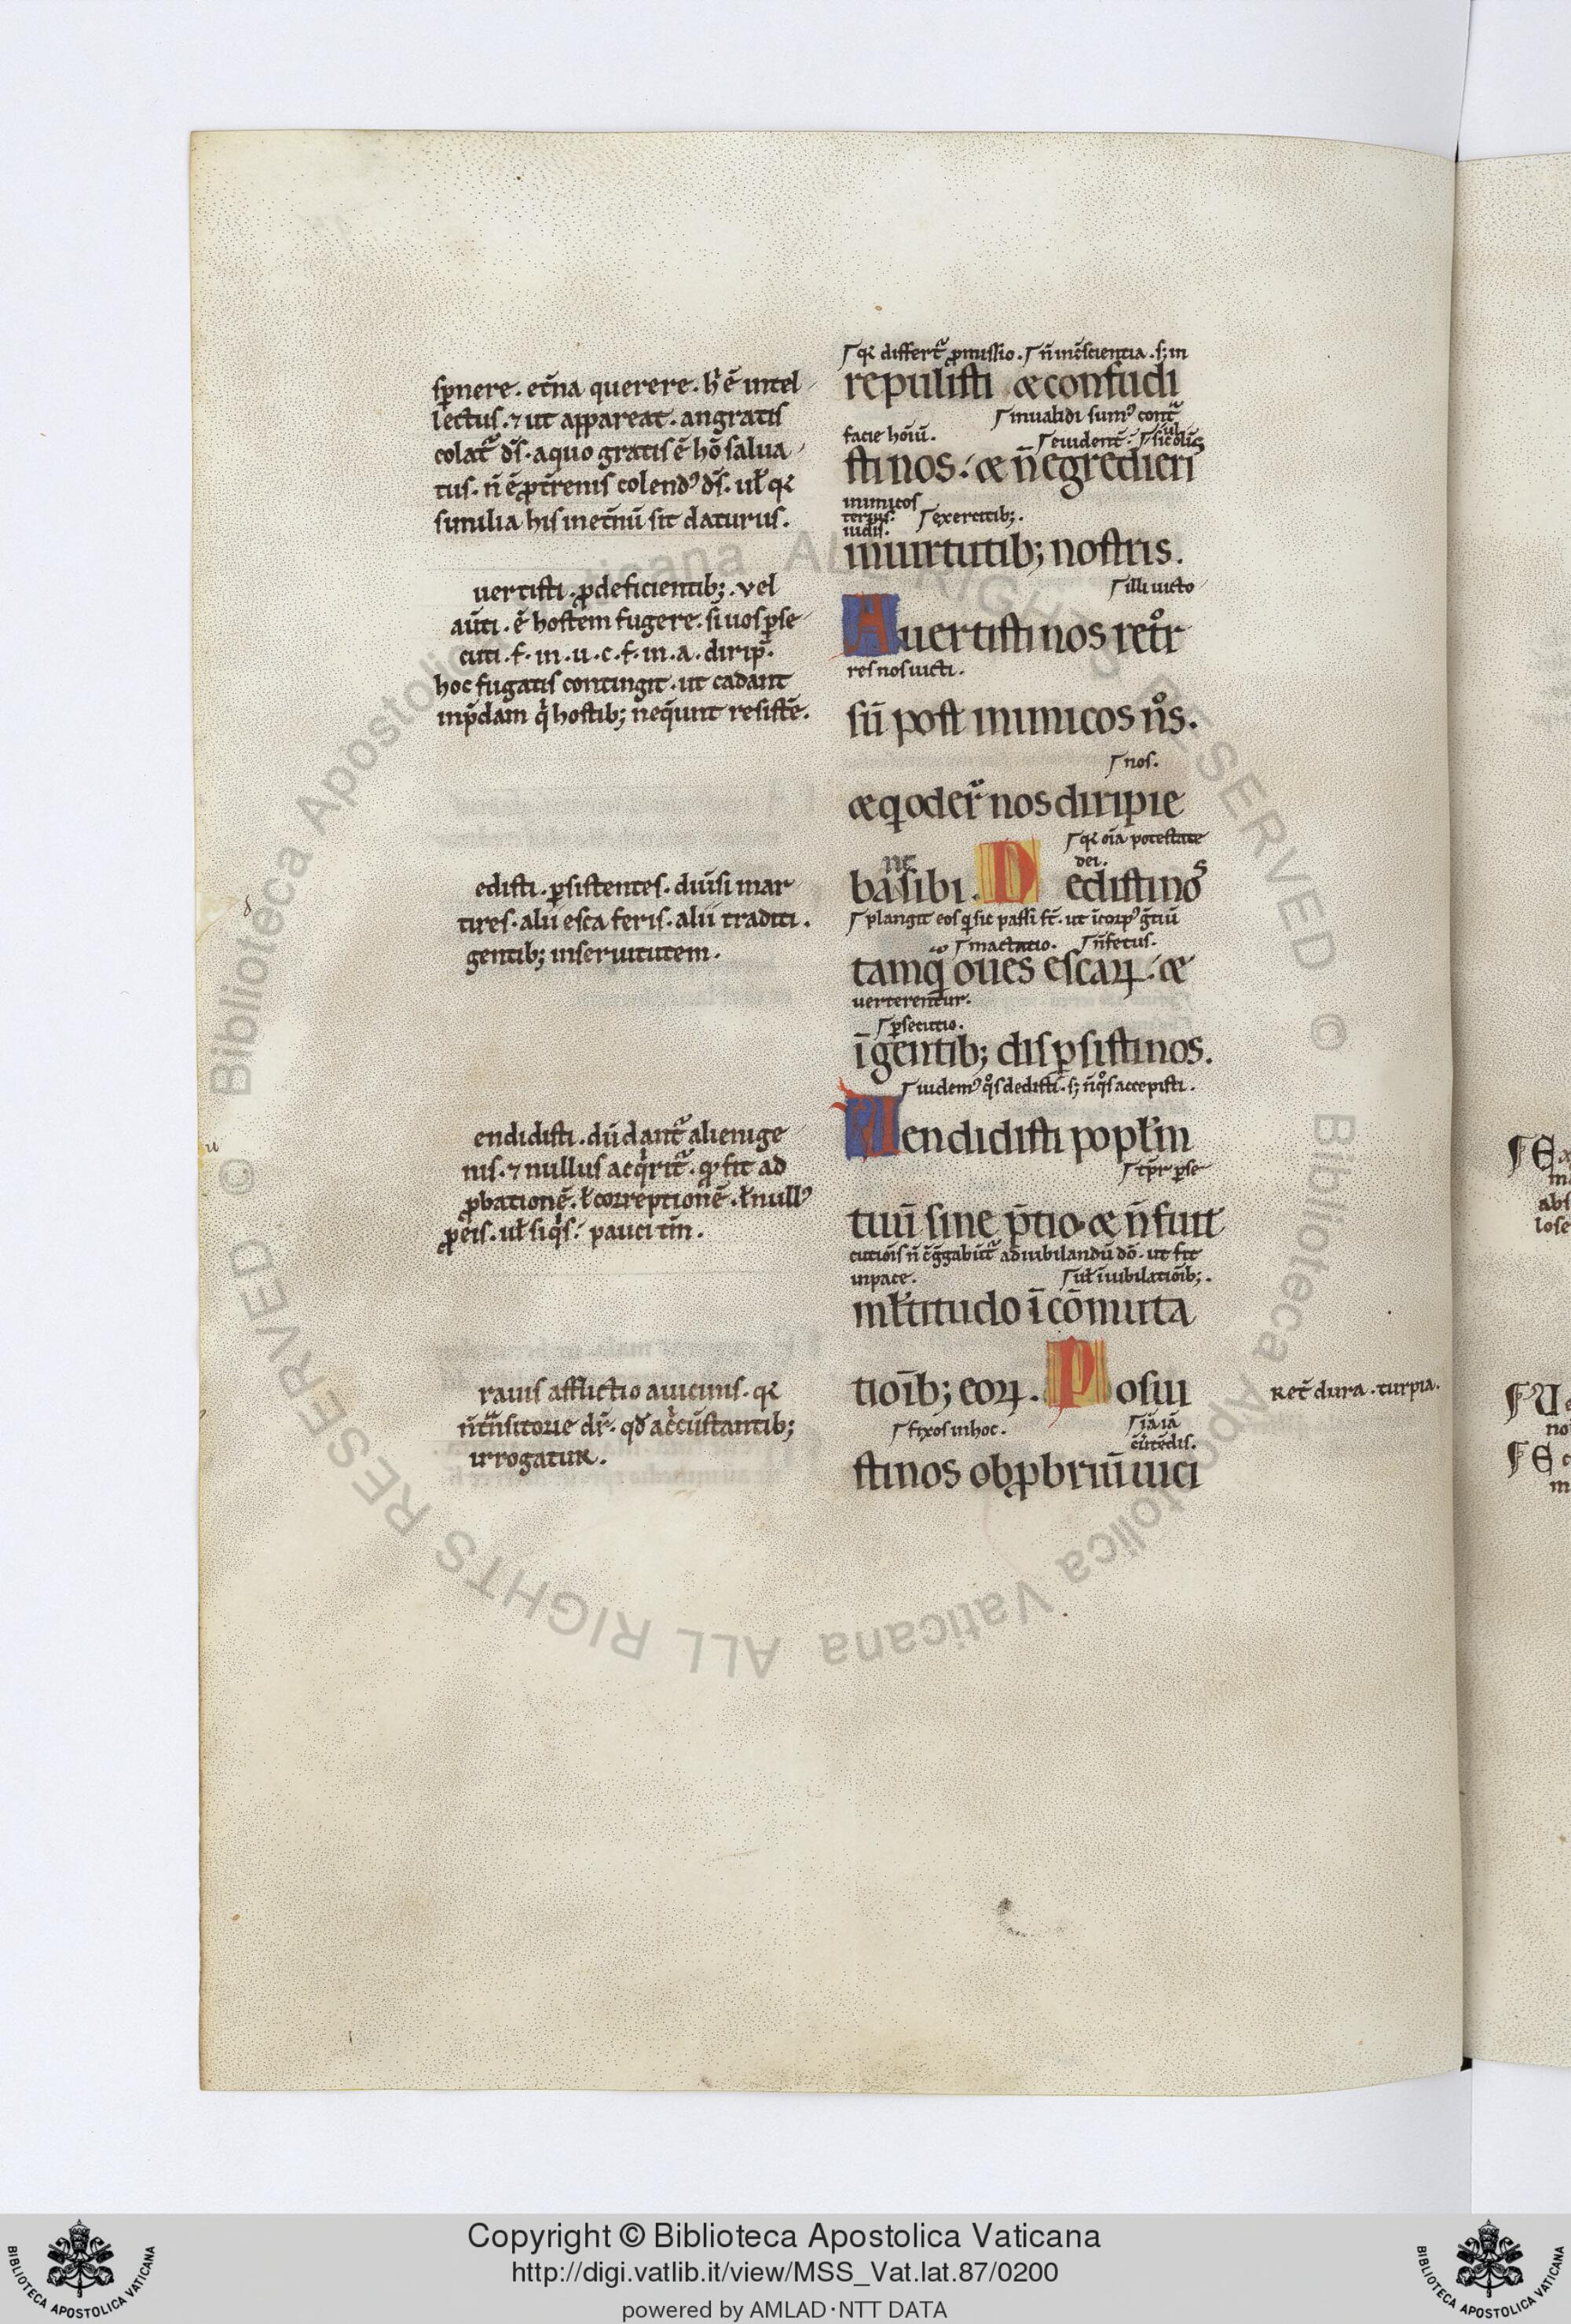 sp̄nere . et̄na querere . h̄ ē intel
lectus . ⁊ ut appareat . an gratis
colat᷑ d̄s . a quo gratis ē hō salua
tus . n̄ ē ꝓ t̄renis colend᷒ d̄s . uł qꝛ
similia his inet̄nū sit daturus .
uertisti . ꝓ deficientib; . vel
aūti . ē hostem fugere . si uos ꝑse
cuti . f . in . u . c . f . in . a . dirip̄ .
hoc fugatis contingit . ut cadant
inp̄dam qͥ hostib; neq̄unt resistē .
edisti . ꝑsistentes . diūsi mar
tires . alii esca feris . alii traditi .
gentib; inseruitutem .
endidisti . dū dant᷑ alienige
nis . ⁊ nullus acqͥrit᷑ . fit ad
ꝓbationē . ł correptionē . ł null᷒
ꝓ eis . uł siqͥs : pauci tn̄ .
rauis afflictio auicinis . qꝛ
n̄ t̄nsitorie dr̄ . qđ ac̄cūstantib;
irrogatur .
qꝛ differt᷑ ꝓmissio . n̄ inc̄scientia . s; in
repulisti æ confudi
inualidi sum᷒ cont᷑
facie hoīū .
euident̄ : ul sic olī
sti nos : æ n̄ egredieris
inimicos
exercitib; .
inuirtutib; nostris .
illi uicto
Auertisti nos retᷣr
res nos uicti .
sū post inimicos nͦs .
nos .
æ q oder᷑ nos diripie
qꝛ oīa potestate
dei .
ne
ba sibi . Dedisti nos
plangit eos qͥ sic passi st̄ . ut ī corp᷒ ḡtiū
mactatio . n̄ fetus .
tamq̄ oues escaꝝ : æ
uerterentur .
ꝑsecutio .
ī gentib; disꝑsisti nos .
uidem᷒ qͦs dedisti . s; n̄ qͦs accepisti .
Uendidisti popłm
tp̄r ꝑse
tuū sine p̄tio . æ n̄ fuit
cutiōis n̄ c̄ḡgabūt᷑ ad iubilandū dō . ut fit
inpace .
uł ī iubilatiōib; .
młtitudo ī cōmuta
tioīb; eoꝝ . Posui
Ret̄ dura . turpia .
fixos inhoc .
sti nos obꝓbriū uici
Copyright © Biblioteca Apostolica Vaticana
http://digi.vatlib.it/view/MSS_Vat.lat.87/0200
powered by AMLAD·NTT DATA
BIBLIOTECA APOSTOLICA VATICANA
BIBLIOTECA APOSTOLICA VATICANA
© Biblioteca Apostolica Vaticana ALL RIGHTS RESERVED
© Biblioteca Apostolica Vaticana ALL RIGHTS RESERVED